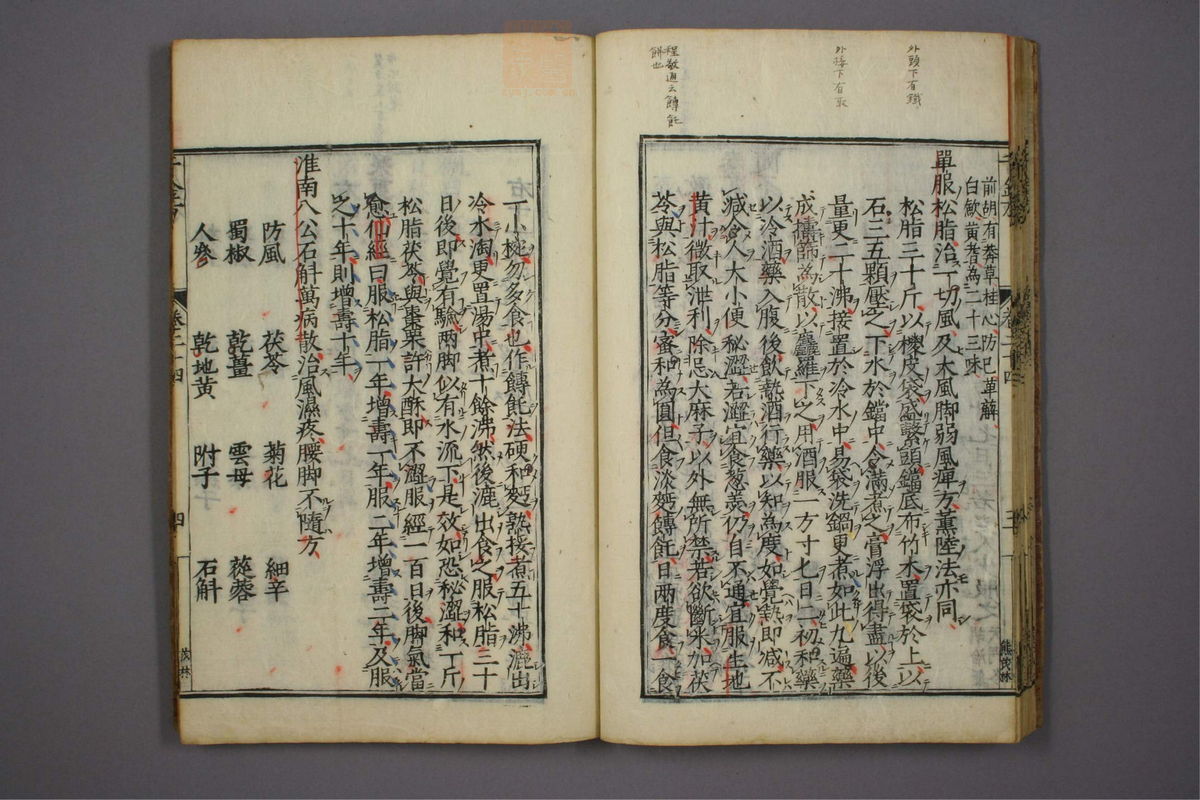 外頸下有鐵
外接下有取
程敬通云餺飥
餅也
前胡有莽草桂心防巳萆解
白歛黄耆為二十三味
單服松脂治一切風及大風脚弱風痺方薫陸法亦同
松脂三十斤以椶皮袋盛繫頭鐺底布竹木置袋於上以
石三五顆壓之下水於鐺中令滿煮之膏浮出得盡以後
量更二十沸接置於冷水中易袋洗鍋更煮如此九遍藥
成擣篩為散以麤羅下之用酒服一方寸匕日二初和藥
以冷酒藥入腹後飲熱酒行藥以知為度如覺熱即減不
減令人大小便秘澀若澀宜食葱羙仍自不通宜服生地
黄汁微取泄利除忌大麻子以外無所禁若欲斷米加茯
苓與松脂等分蜜和為圓但食淡麪餺飥日兩度食一食
一小椀勿多食也作餺飥法硬和麪熟挼煮五十沸漉出
冷水淘更置湯中煮十餘沸然後漉出食之服松脂三十
日後即覺有驗兩脚似有水流下是效如恐秘澀和一斤
松脂茯苓與棗栗許大酥即不澀服經一百日後脚氣當
愈仙經曰服松脂一年增壽一年服二年增壽二年及服
之十年則增壽十年
淮南八公石斛萬病散治風濕疼腰脚不隨方
防風 茯苓 菊花 細辛
蜀椒 乾薑 雲母 蓯蓉
人參 乾地黄 附子 石斛
卷二十四
四
茂林
三
熊茂林